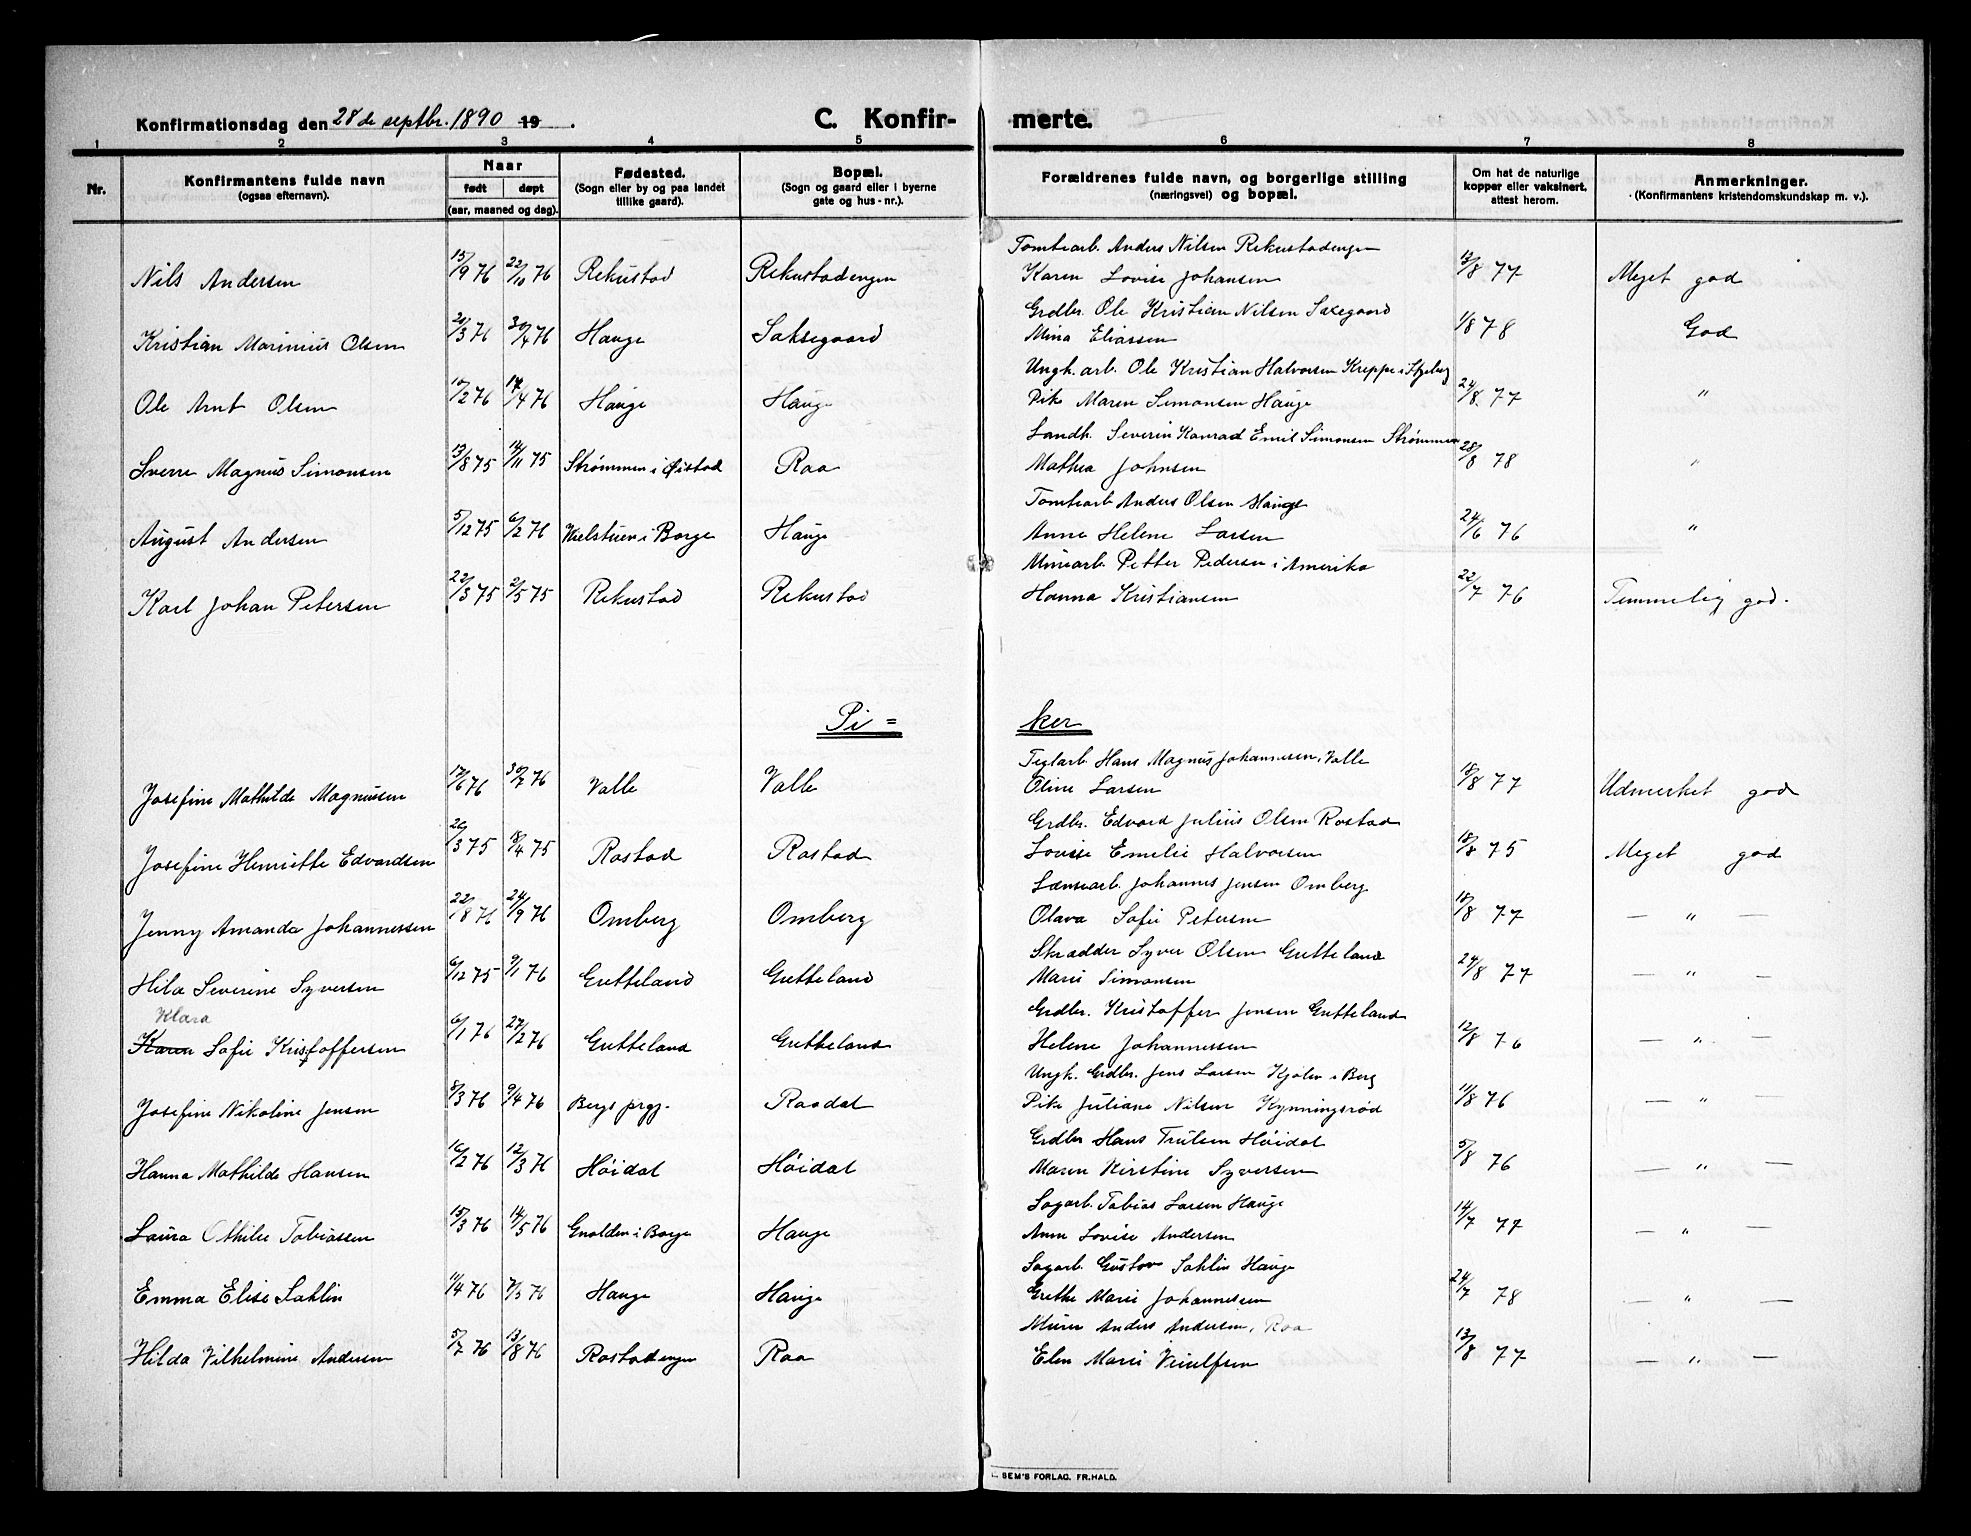 Konfirmationsdag den 28de septbr. 1890 19 .
C. Konfir-
merte.
1 2 3 4 5 6 7 8
Nr.
Konfirmantens fulde navn
(ogsaa efternavn).
Naar
født døpt
(aar, maaned og dag).
Fødested.
(Sogn eller by og paa landet
tillike gaard).
Bopæl.
(Sogn og gaard eller i byerne
gate og hus-nr.).
Forældrenes fulde navn, og borgerlige stilling
(næringsvei) og bopæl.
Om hat de naturlige
kopper eller vaksinert,
attest herom.
Anmerkninger.
(Konfirmantens kristendomskundskap m. v.).
Tomtearb. Anders Nilsen Rekustadengen
Nils Andersen 15/9 76 22/10 76 Rekustad Rekustadengen Karen Lovise Johansen 13/8 77 Meget god
Grdbr. Ole Kristian Nilsen Saxegaard
Kristian Marinius Olsen 20/3 76 30/4 76 Hauge Saksegaard Mina Eliassen 1/8 78 God
Ungk. arb. Ole Kristian Halvorsen Kreppe i
Ole Arnt Olsen 10/2 76 17/4 76 Hauge Hauge Pike Maren Simonsen Hauge 24/8 77 "
Landh. Severin Konrad Emil Simonsen Strømmen
Sverre Magnus Simonsen 13/8 75 14/11 75 Strømmen i Øistad Raa Mathea Johnsen 28/8 78 "
Tomtearb Anders Olsen Hauge
August Andersen 5/12 75 6/2 76 i Borge Hauge Anne Helene Larsen 24/6 76 "
Minearb. Petter Pedersen i Amerika
Karl Johan Petersen 22/3 75 2/5 75 Rekustad Rekustad Hanna Kristiansen 22/7 76 Temmelig god.
Pi=
ker
Teglarb. Hans Magnus Johannesen, Valle
Josefine Mathilde Magnusen 17/6 76 30/7 76 Valle Valle Oline Larsen 18/8 77 Udmerket god
Grdbr. Edvard Julius Olsen Rostad
Josefine Henriette Edvardsen 26/3 75 18/4 75 Rostad Rostad Lovise Emelie Halvorsen 18/8 75 Meget god
Lænsearb. Johannes Jensen Omberg
Jenny Amanda Johannessen 22/8 76 24/9 76 Omberg Omberg Olava Sofie Petersen 18/8 77 — " —
Skrædder Syver Olsen Gutteland
Hilda Severine Syversen 6/12 75 9/1 76 Gutteland Gutteland Marie Simonsen 24/8 77 — " —
Klara
Grdbr. Kristoffer Jensen Gutteland
Karen Sofie Kristoffersen 6/1 76 27/2 76 Gutteland Gutteland Helene Johannessen 12/8 76 — " —
Ungk. Grdbr. Jens Larsen Kjølen i Berg
Josefine Nikoline Jensen 8/3 76 9/4 76 Bergs prgj. Raadal Pike Juliane Nilsen Kynningsrød 11/8 76 — " —
Grdbr Hans Trulsen Høidal
Hanna Mathilde Hansen 16/2 76 12/3 76 Høidal Høidal Maren Kirstine Syversen 5/8 76 — " —
Sagarb. Tobias Larsen Hauge
Laura Othilie Tobiassen 15/3 76 14/5 76 Gnolden i Borge Hauge Anne Lovise Andersen 14/7 77 — " —
Sagarb. Gustav Sahlin Hauge
Emma Elise Sahlin 11/4 76 7/5 76 Hauge Hauge Grethe Marie Johannessen 24/7 78 — " —
Murer Anders Andersen, Raa
Hilda Vilhelmine Andersen 5/7 76 13/8 76 Rostadengen Raa Elen Marie 13/8 77 — " —
SEM'S FORLAG. FR.HALD.